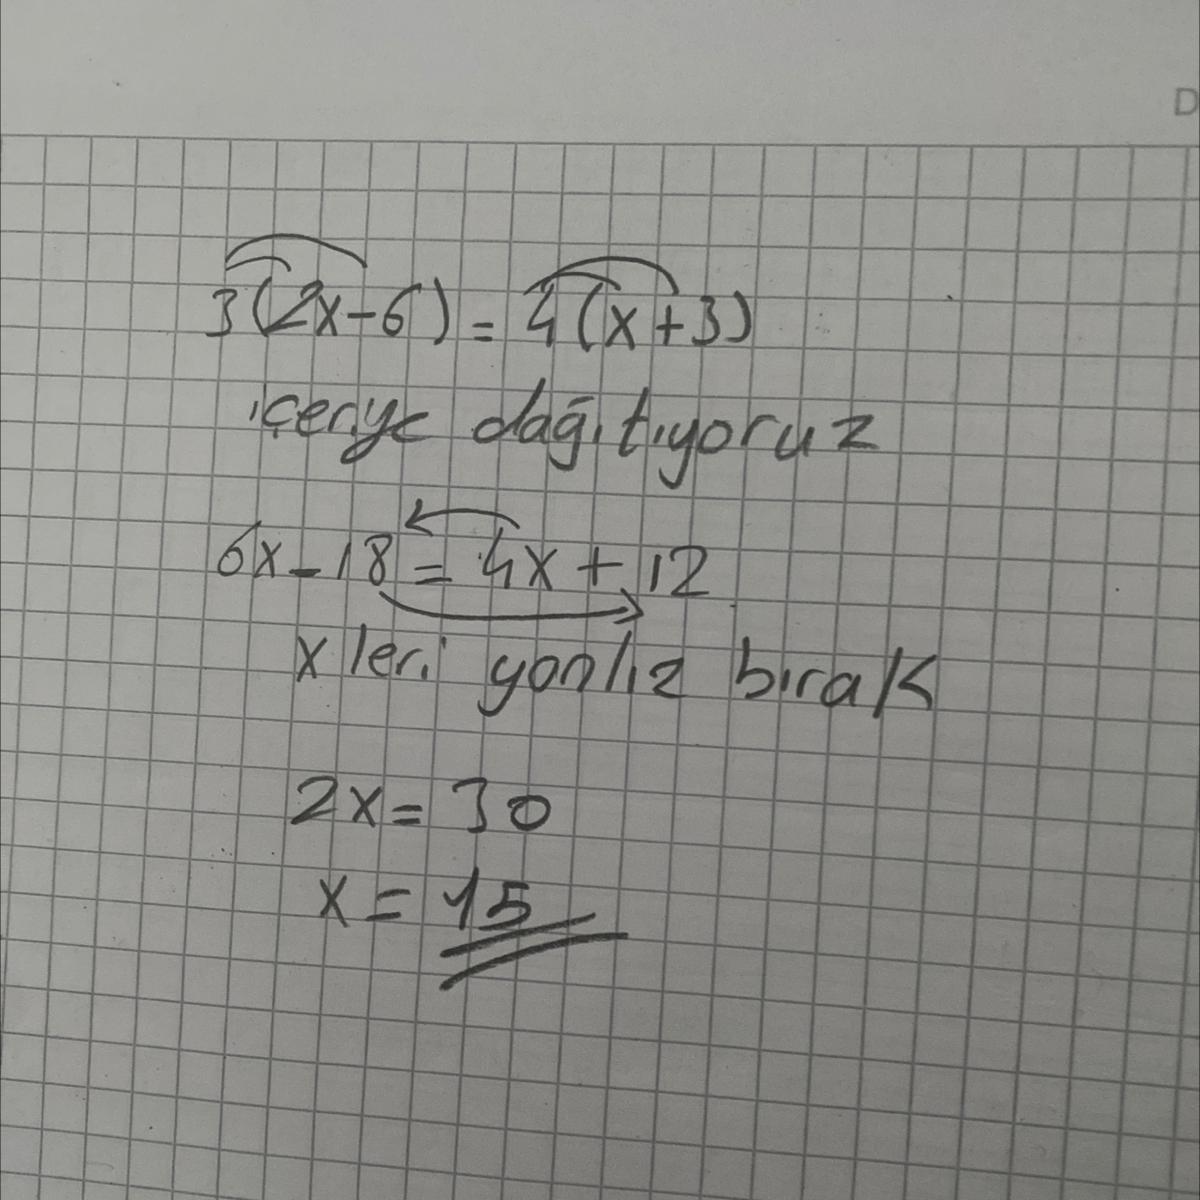 D
3(2x-6) = 4(x+3)
içeriye dağıtıyoruz
6x-18 = 4x + 12
x leri yanlız bırak
2x = 30
x = 15